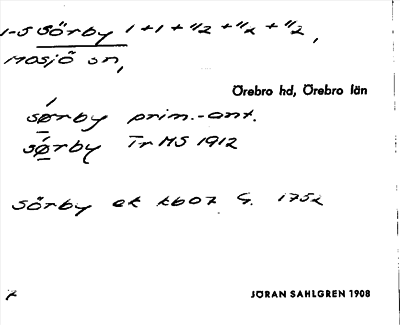 1-5 Sörby 1+1+1/2+1/2+1/2,
Mosjö sn,
Örebro hd, Örebro län
sǿ̱rby prim.-ant.
sǿ̱rby Tr MS 1912
Sörby ek kb07 G. 1752
JÖRAN SAHLGREN 1908